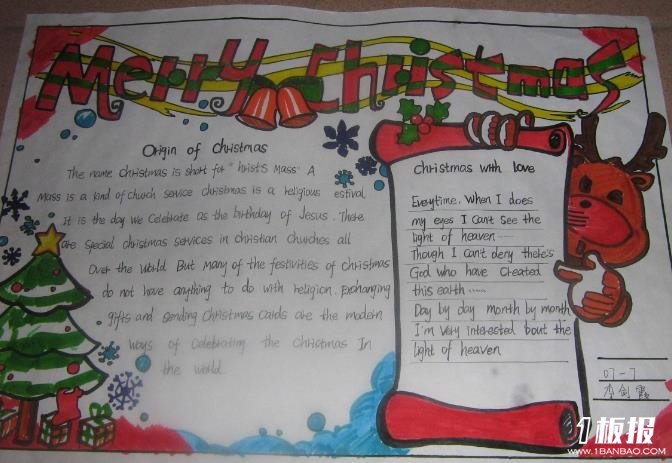 Merry Christmas
Origin of christmas
The name christmas is short for "hrist's Mass" A
Mass is a kind of church service christmas is a religious estival
it is the day we celebrate as the birthday of Jesus. There
are special christmas services in christian churches all
Over the world But many of the festivities of christmas
do not have anything to do with religion. Exchanging
gifts and sending christmas cards are the modern
ways of celebrating the christmas In
the world.
christmas with love
Everytime. When I does
my eyes I can't see the
light of heaven ......
Though I can't deny there's
God who have created
this earth ......
Day by day month by month
I'm very interested 'bout the
light of heaven
07-7
李剑霞
1板报
WWW.1BANBAO.COM